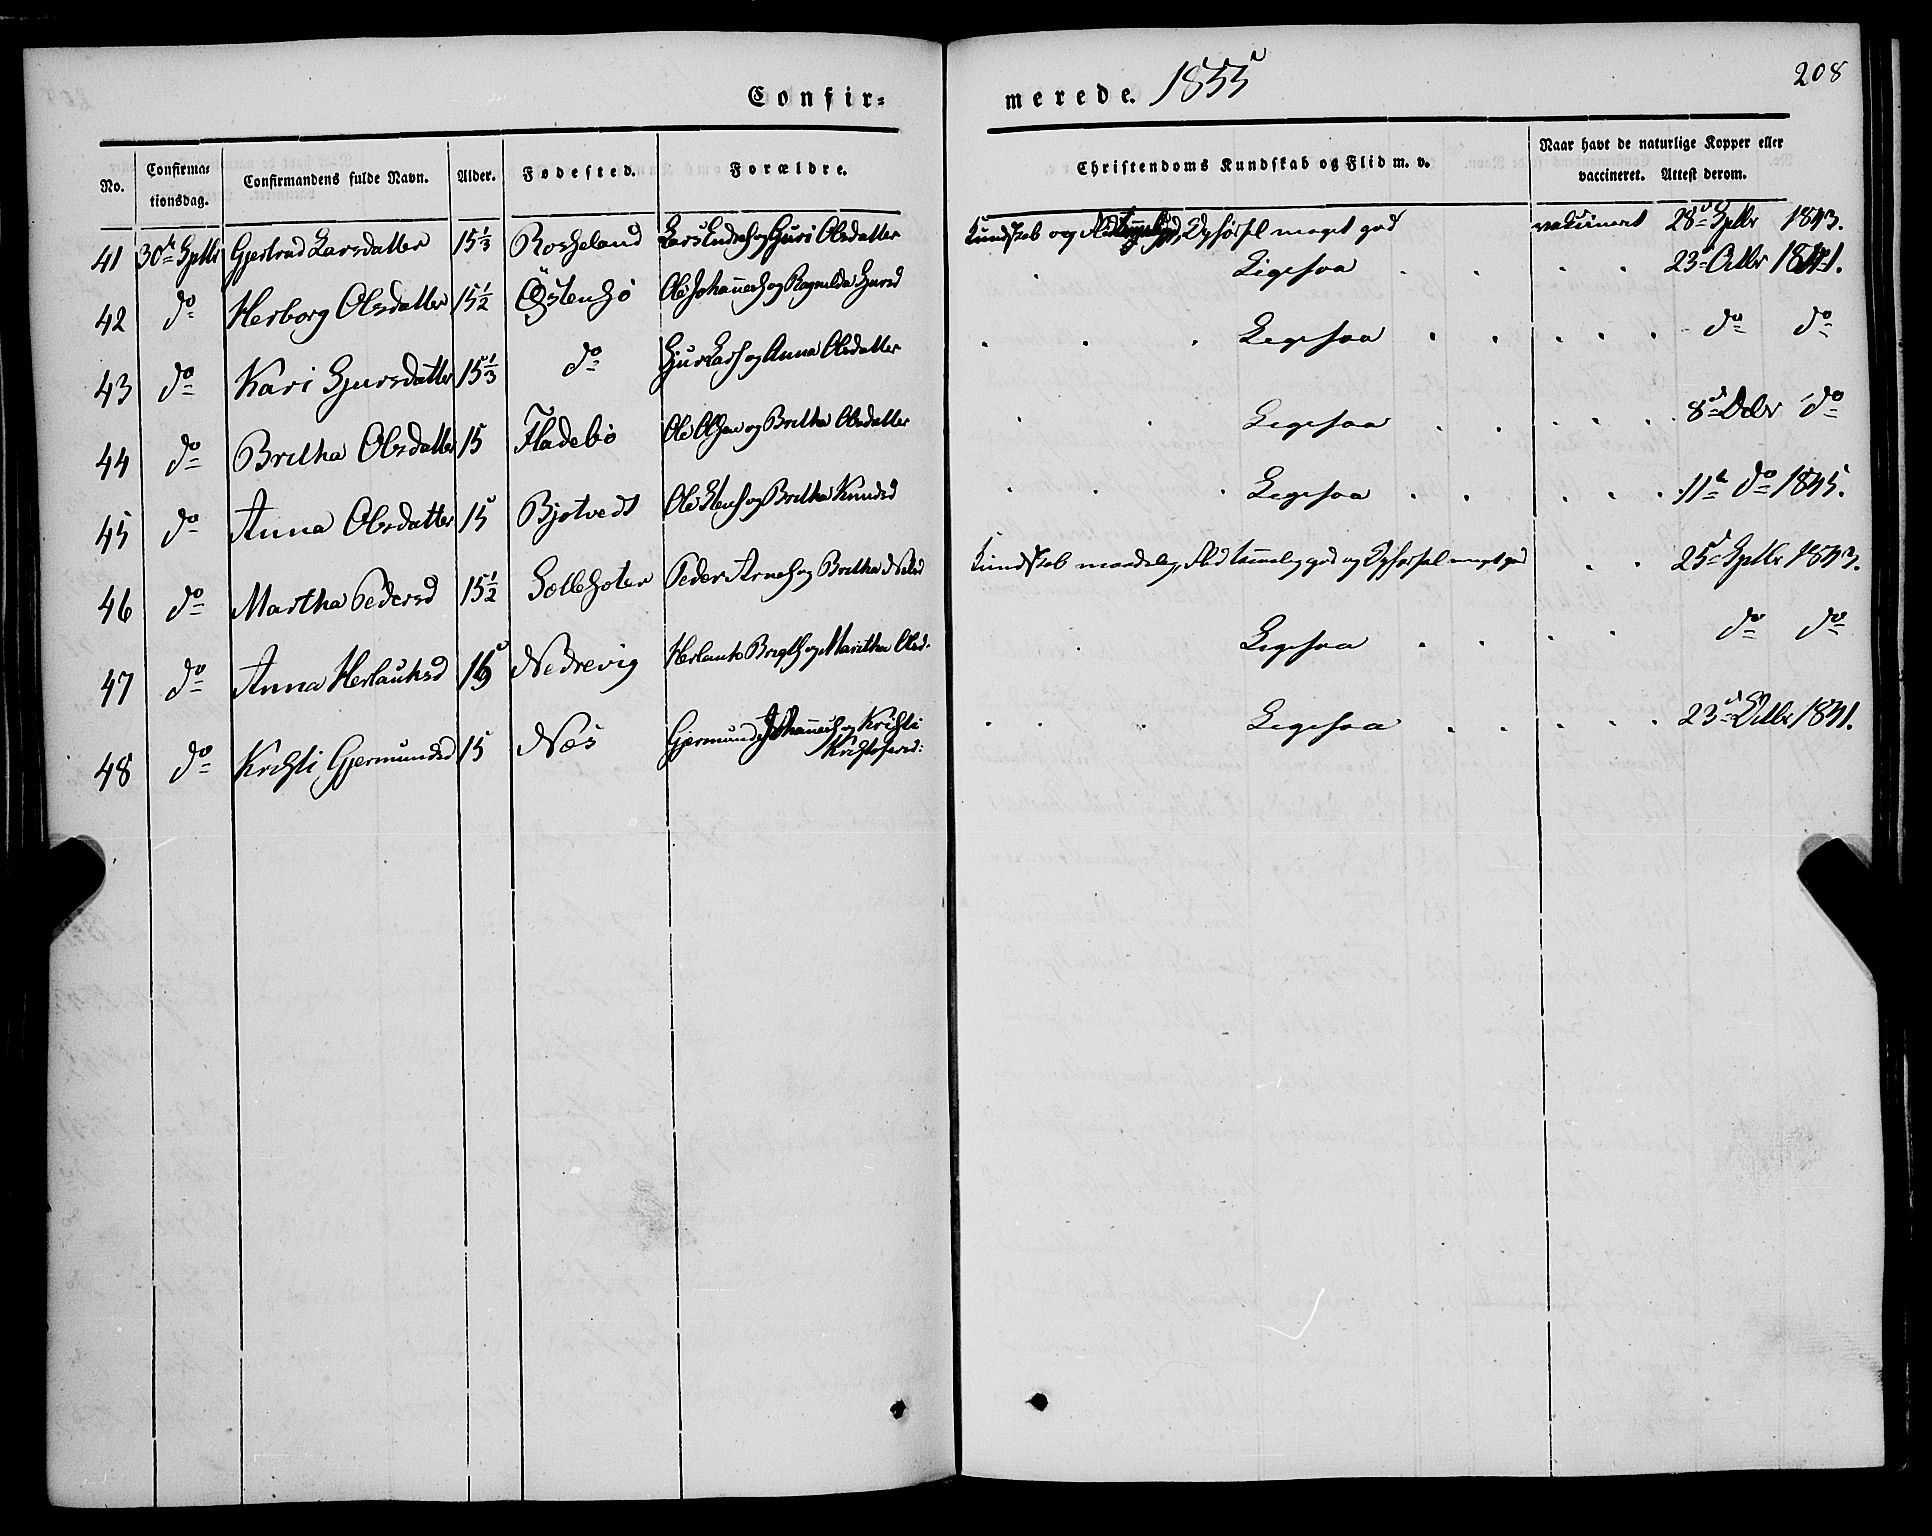 Confir=
merede. 1855
208
No.
Confirma=
tionsdag.
Confirmandens fulde Navn.
Alder.
Fødested.
Forældre.
Christendoms Kundskab og Flid m. v.
Naar havt de naturlige Kopper eller
vaccineret. Attest derom.
41 30te Sptbr Gjertrud Larsdatter 15 1/3 Rosseland Lars Endres og Guri Olsdatter Kundskab og Flid Opførsel meget god vakcineret 28de Sptbr 1843.
42 do Herborg Olsdatter 15 1/2 Østensø Ole Johannes og Ragnilda Gjursd Ligesaa 23de Octbr 1841.
43 do Kari Gjursdatter 15 1/3 do Gjur Lars og Anna Olsdatter Ligesaa do do
44 do Britha Olsdatter 15 Fladebø Ole Olsen og Britha Olsdatter Ligesaa 8de Decbr do
45 do Anna Olsdatter 15 Bjotvedt Ole Stens og Britha Knudsd Ligesaa 11te do 1845.
46 do Martha Pedersd 15 1/2 Peder Arnes og Britha Nilsd Kundskab maadelig, Flid temmelig god og Opførsel meget god 25de Sptbr 1843.
47 do Anna Herlauksd Nedrevig Herlauk og Maritha Olsd. Ligesaa do do
48 do Kristi Gjermundsd 15 Næs Gjermund Johannes og Kristi
Kristofersd: Ligesaa 23de Octbr 1841.